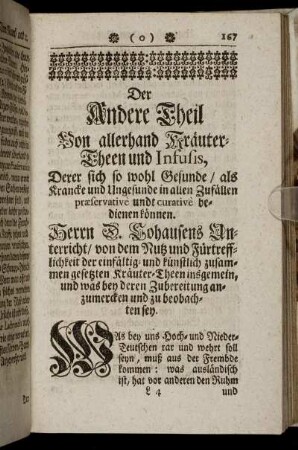 (o) 167
Der
Andere Theil
Von allerhand Kräuter-
Theen und Infusis,
Derer sich so wohl Gesunde / als
Krancke und Ungesunde in allen Zufällen
præservativè undt curativè be-
dienen können.
Herrn D. Lohausens Un-
terricht / von dem Nutz und Fürtreff-
lichkeit der einfältig- und künstlich zusam-
men gesetzten Kräuter-Theen insgemein,
und was bey deren Zubereitung an-
zumercken und zu beobach-
ten sey.
WAs bey uns Hoch- und Nieder-
Teutschen rar und wehrt soll
seyn, muß aus der Frembde
kommen: was ausländisch
ist, hat vor anderen den Ruhm
L 4 und